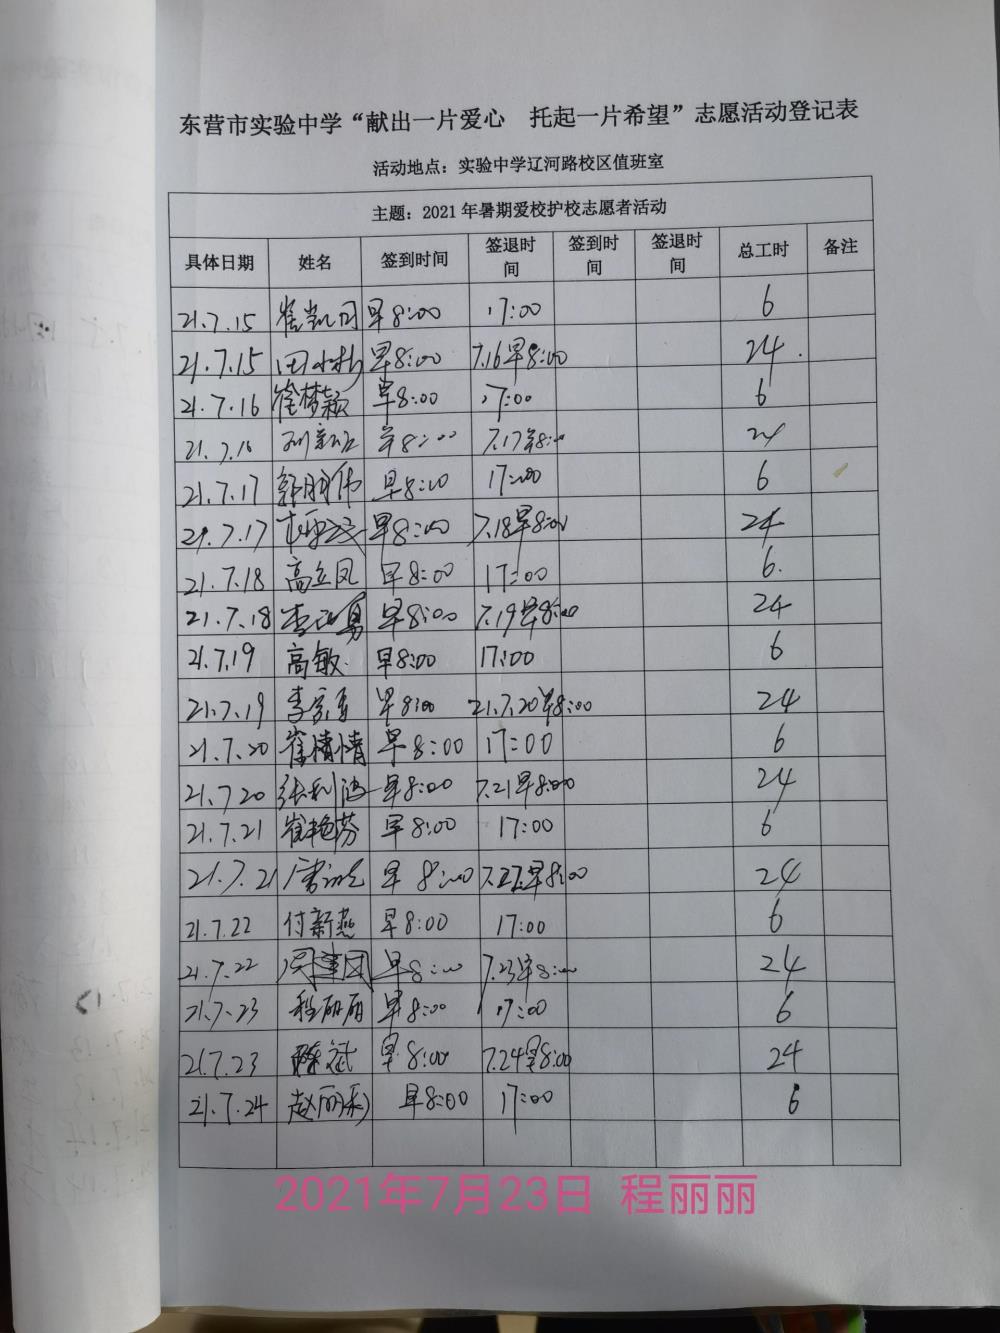 东营市实验中学“献出一片爱心 托起一片希望”志愿活动登记表
活动地点：实验中学辽河路校区值班室
主题：2021年暑期爱校护校志愿者活动
具体日期 姓名 签到时间 签退时间 签到时间 签退时间 总工时 备注
21.7.15 崔凯月 早8:00 17:00 6
21.7.15 早8:00 7.16早8:00 24
21.7.16 崔梦颖 早8:00 17:00 6
21.7.16 早8:00 7.17早8:00 24
21.7.17 郭明伟 早8:00 17:00 6
21.7.17 早8:00 7.18早8:00 24
21.7.18 高立凤 早8:00 17:00 6
21.7.18 早8:00 7.19早8:00 24
21.7.19 高敏 早8:00 17:00 6
21.7.19 早8:00 21.7.20早8:00 24
21.7.20 崔倩倩 早8:00 17:00 6
21.7.20 张利 早8:00 7.21早8:00 24
21.7.21 崔艳芬 早8:00 17:00 6
21.7.21 早8:00 7.22早8:00 24
21.7.22 付新燕 早8:00 17:00 6
21.7.22 周建国 早8:00 7.23早8:00 24
21.7.23 程丽丽 早8:00 17:00 6
21.7.23 陈斌 早8:00 7.24早8:00 24
21.7.24 赵丽彩 早8:00 17:00 6
2021年7月23日 程丽丽